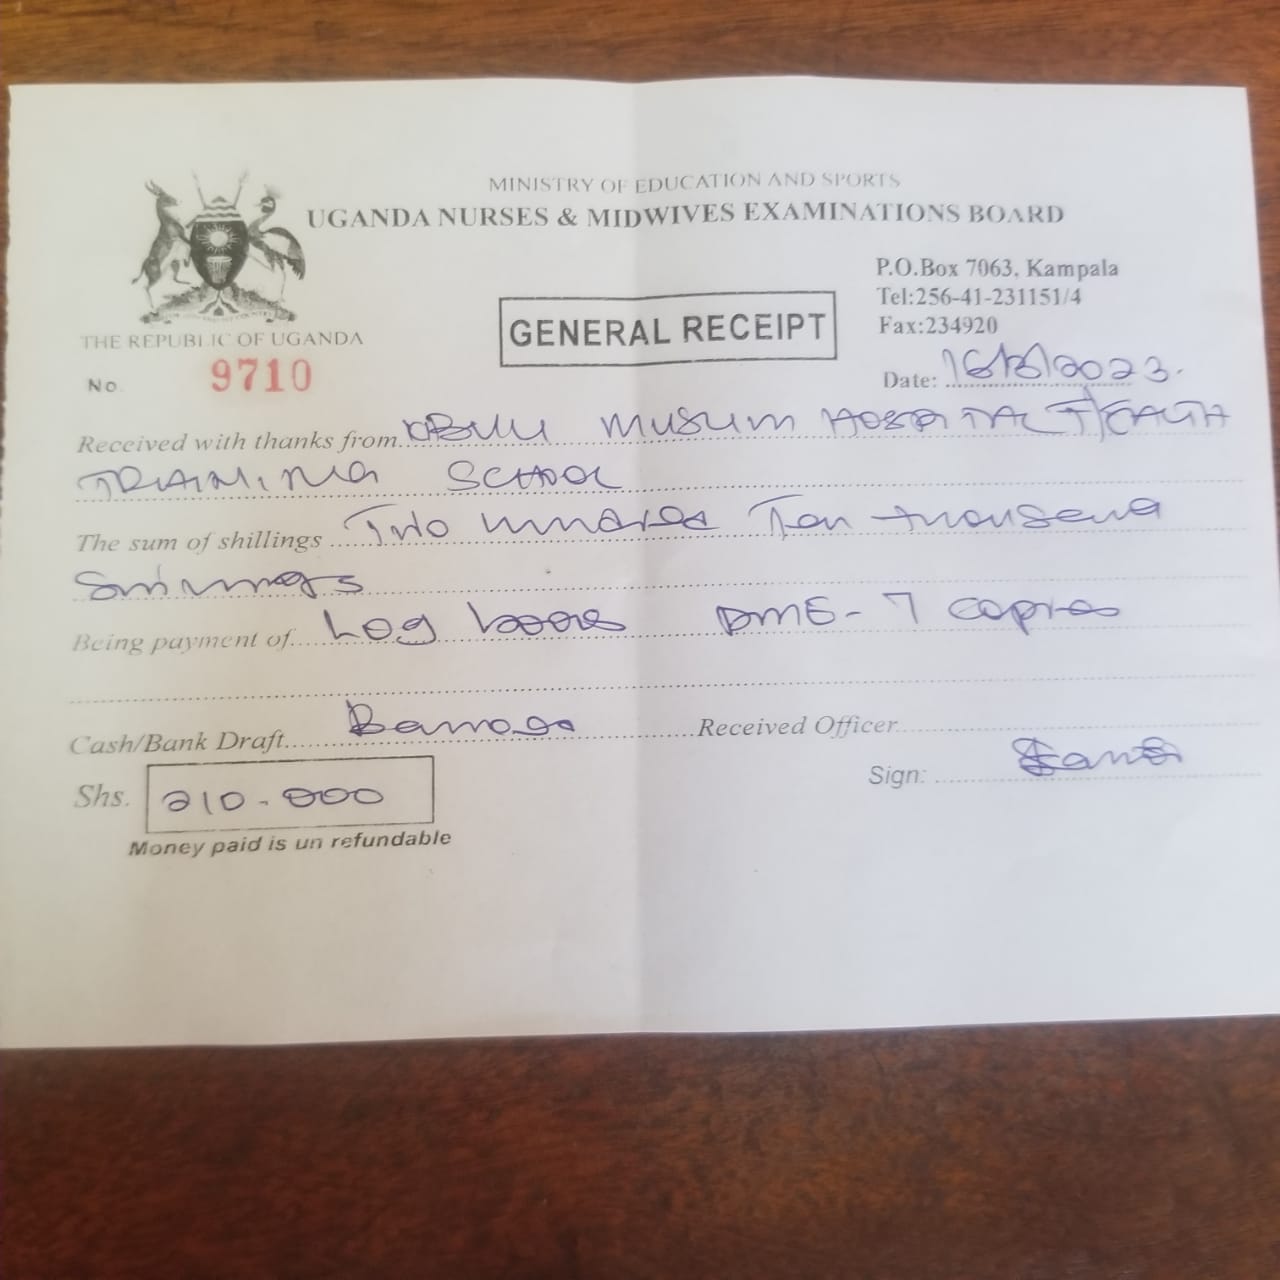 MINISTRY OF EDUCATION AND SPORTS
UGANDA NURSES & MIDWIVES EXAMINATIONS BOARD
P.O.Box 7063, Kampala
Tel:256-41-231151/4
Fax:234920
GENERAL RECEIPT
THE REPUBLIC OF UGANDA
No. 9710
Date: 2023.
Received with thanks from MUSLIM HOSPITAL HEALTH
TRAINING SCHOOL
The sum of shillings Two Hundred Ten thousand
Shillings
Being payment of Log books DME - 7 copies
Cash/Bank Draft
Received Officer
Sign:
Shs. 210.000
Money paid is un refundable